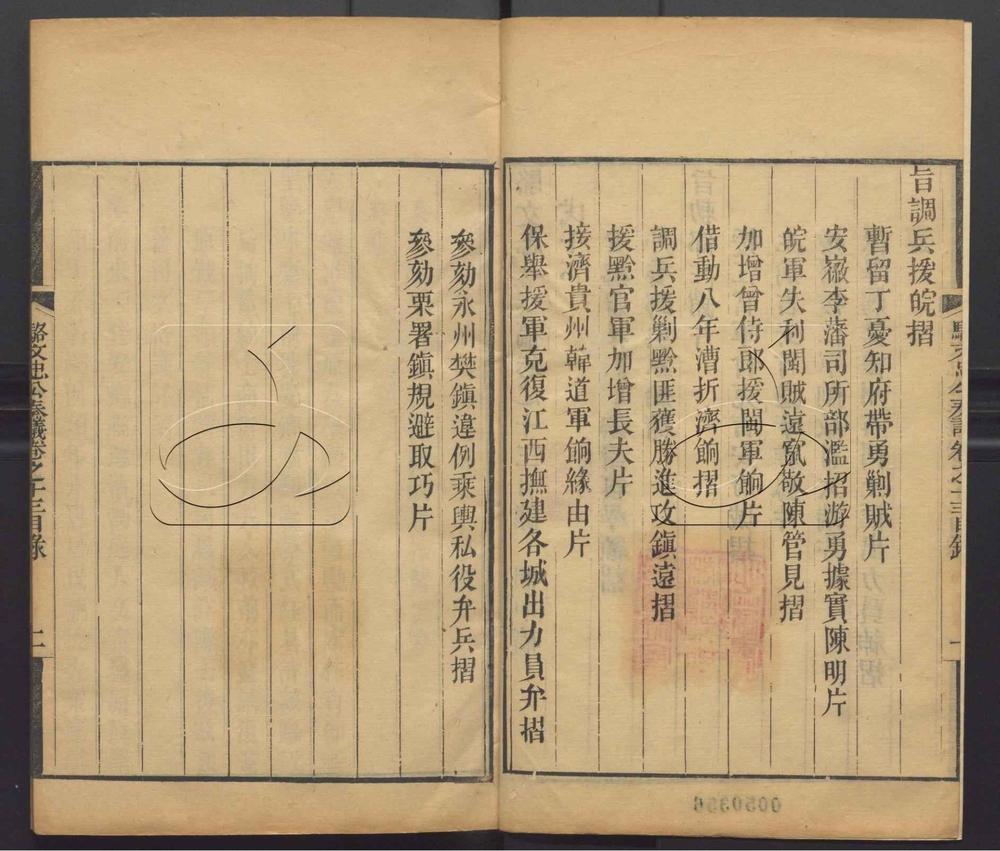 旨調兵援皖摺
暫留丁憂知府帶勇剿賊片
安徽李藩司所部濫招游勇據實陳明片
皖軍失利閩賊遠竄敬陳管見摺
加增曾侍郎援閩軍餉片
借動八年漕折濟餉摺
調兵援剿黔匪獲勝進攻鎮遠摺
援黔官軍加增長夫片
接濟貴州韓道軍餉緣由片
保舉援軍克復江西撫建各城出力員弁摺
參劾永州樊鎮違例乘輿私役弁兵摺
參劾栗署鎮規避取巧片
駱文忠公奏議卷之十三目錄
二
0050396